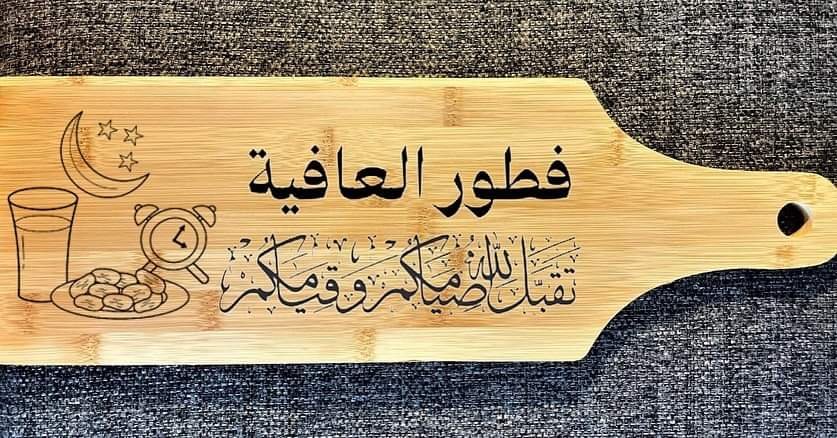 فطور العافية
تقبل الله صيامكم وقيامكم